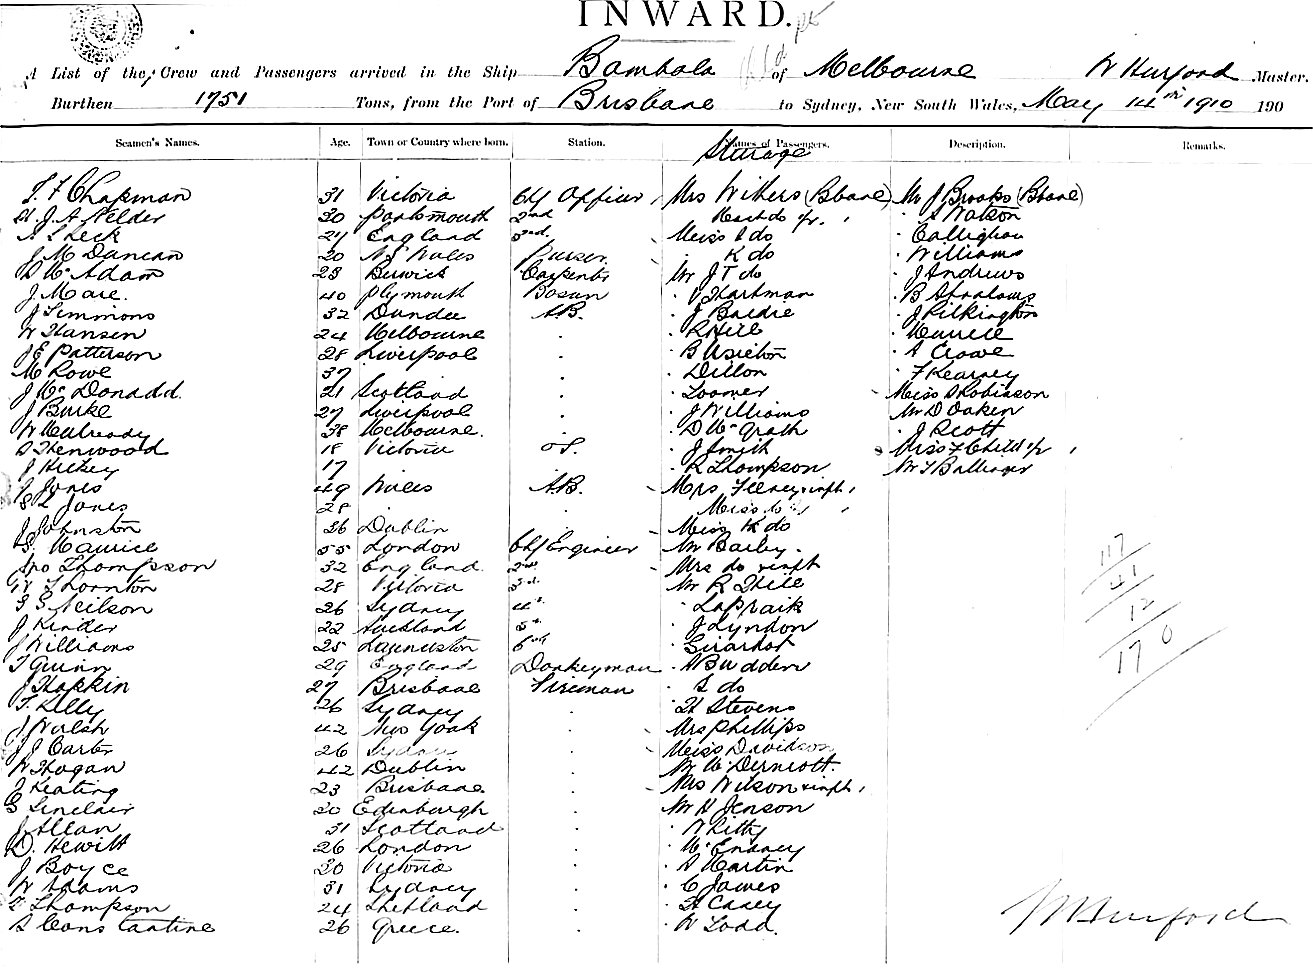 INWARD.
A List of the Crew and Passengers arrived in the Ship Bombala of Melbourne W Hurford Master.
Burthen 1751 Tons, from the Port of Brisbane to Sydney, New South Wales, May 14th 1910 190
Seamen's Names. Age. Town or Country where born. Station. Names of Passengers. Description. Remarks.
Sturage
T. F Chapman 31 Victoria Chf Officer Mrs Withers (Bbane) Mr J Brooks (Bbane)
H. J. A. Nelder 30 Portsmouth 2nd Mast do " S Watson
A S Leck 24 England 3rd. Meiss I do " Callighan
J Mc Duncan 20 N S Wales Purser " K do " Williams
D Mc Adam 28 Berwick Carpenter Mr J T do " J Andrews
J Mare. 40 Plymouth Bosun " V Hartman " B Abrahams
J Simmons 32 Dundee A.B. " J Baldie " J Pilkington
W Hansen 24 Melbourne " R Hill " Maurice
J E Patterson 28 Liverpool " B " A Crowe
M Rowe 37 " Dillon " F Kearney
J Mc Donadd. 21 Scotland " Loomer Miss S Robisson
J Burke 27 Liverpool " J Williams Mr D Oakin
W Mulready 38 Melbourne. " D Mc Grath " J Scott
S Henwood 18 Victoria O.S. " J Smith Miss F Child
J Hickey 17 " R Thompson Mr T Ballinger
J Jones 49 Wales A.B. Mrs Feeney & inft
S L Jones 28 " Meiss
J Johnston 36 Dublin Meiss K do
S. Maurice 55 London Chf Engineer Mr Bailey.
Jno Thompsson 32 England 2nd Mrs do & inft
W Thornton 28 Victoria 3rd Mr R Hill
S S Neilson 26 Sydney 4th " Lapraik
J Kinder 22 Auckland 5th " J Lyndon
J Williams 25 Launceston 6th " Girardot
T Quinn 29 England Donkeyman " A Budden
J Hopkin 27 Brisbane Fireman " S do
T. Kelly 26 Sydney " H Stevens
J Walsh 42 New York Mrs Phillips
J J Carter 26 Sydney Meiss Davidson
W Hogan 42 Dublin Mr Mc Dermott.
J Keating 23 Brisbane Mrs Wilson & inft
G Sinclair 30 Edinburgh Mr H Jenson
J Allan 31 Scotland " W Kitty
D. Hewitt 26 London " Mc Enaney
J Boyce 30 Victoria " A Martin
W Adams 31 Sydney " C James
T Thompson 24 Shetland " H Casey
S Constantine 26 Greece. " W Todd.
117
41
12
170
W Hurford